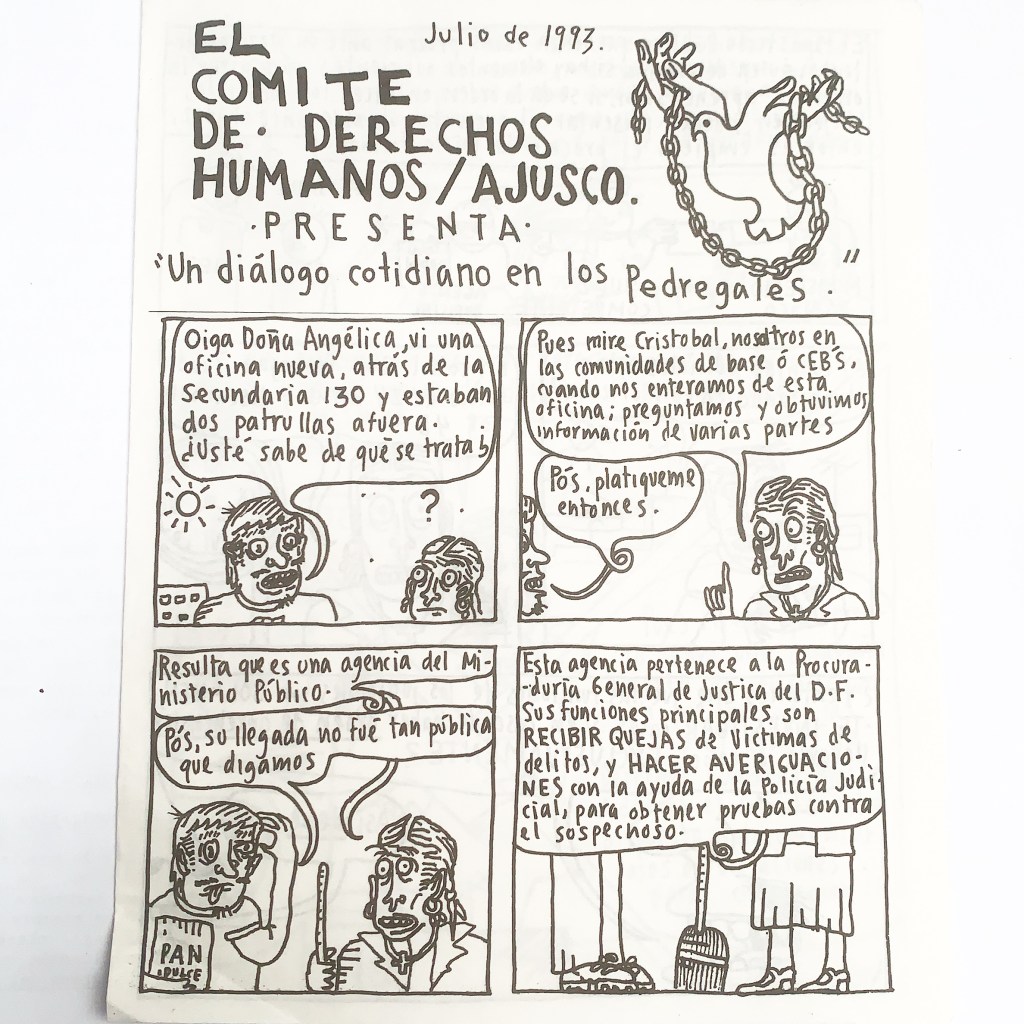 Julio de 1993.
EL
COMITE
DE· DERECHOS
HUMANOS/AJUSCO.
·PRESENTA·
"Un diálogo cotidiano en los Pedregales."
Oiga Doña Angélica, vi una
oficina nueva, atrás de la
Secundaria 130 y estaban
dos patrullas afuera.
¿Usté sabe de què se trata?
?
Pues mire Cristobal, nosotros en
las comunidades de base ó CEB'S,
cuando nos enteramos de esta
oficina; preguntamos y obtuvimos
información de varias partes
Pós, platiqueme
entonces.
Resulta que es una agencia del Mi-
nisterio Público.
Pós, su llegada no fué tan pública
que digamos
PAN
DULCE
Esta agencia pertenece a la Procura-
-duría General de Justica del D.F.
Sus funciones principales son
RECIBIR QUEJAS de Víctimas de
delitos, y HACER AVERIGUACIO-
NES con la ayuda de la Policía Judi-
cial, para obtener pruebas contra
el sospechoso.